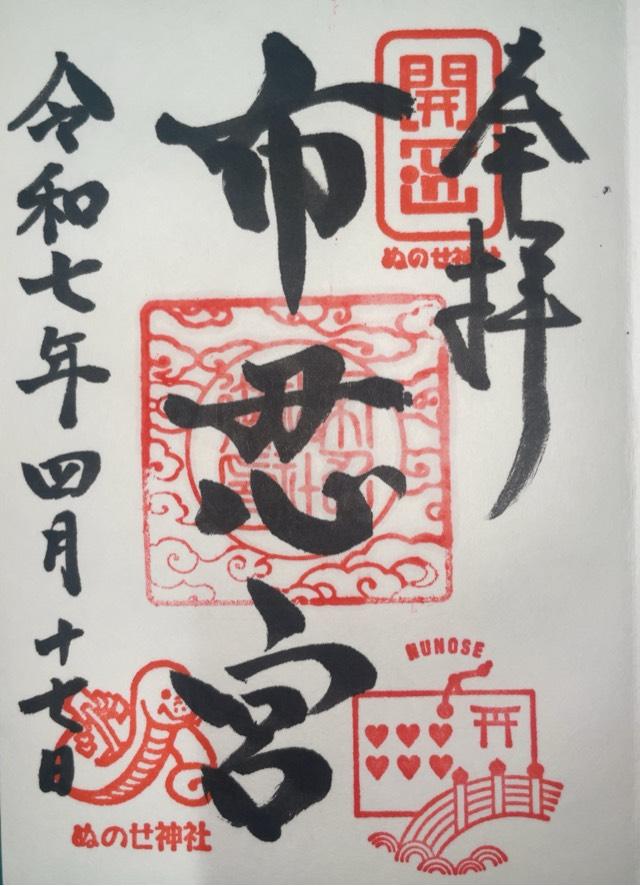 奉拝
開運
ぬのせ神社
布忍宮
NUNOSE
令和七年四月十七日
ぬのせ神社